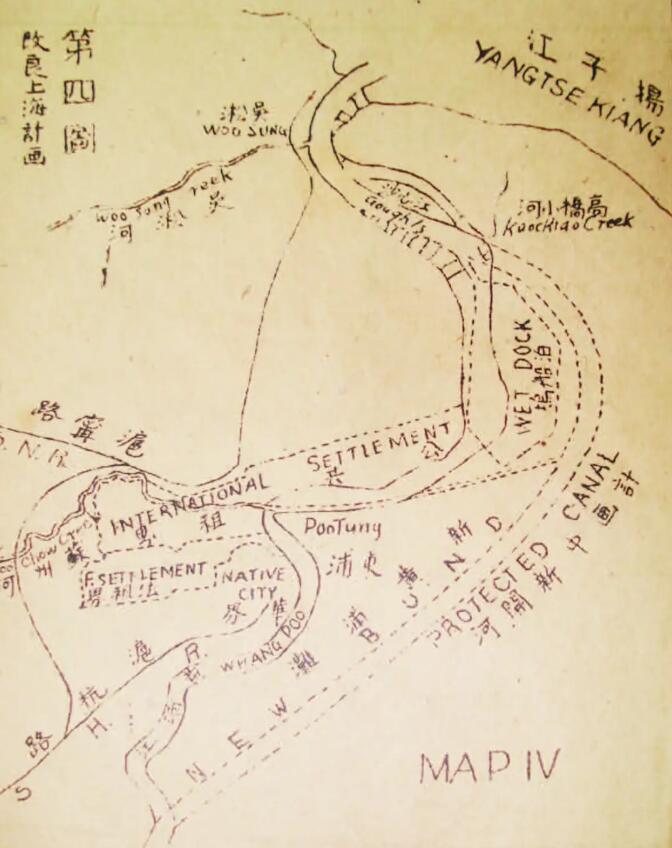 第四圖
改良上海計画
江子揚
YANGTSE KIANG
淞吳
WOO SUNG
Woo Sung Creek
河淞吳
Gough Is
河小橋高
KaocKiao Creek
WET DOCK
路寗滬
S. N. R.
SETTLEMENT
公共
INTERNATIONAL
租
PooTung
浦東
Chow Creek
州
F. SETTLEMENT
界租法
NATIVE
CITY
WHANG POO
滬杭
H.
R.
路
S
NEW BUND
新黃浦灘
PROTECTED CANAL
河開新中画計
MAP IV